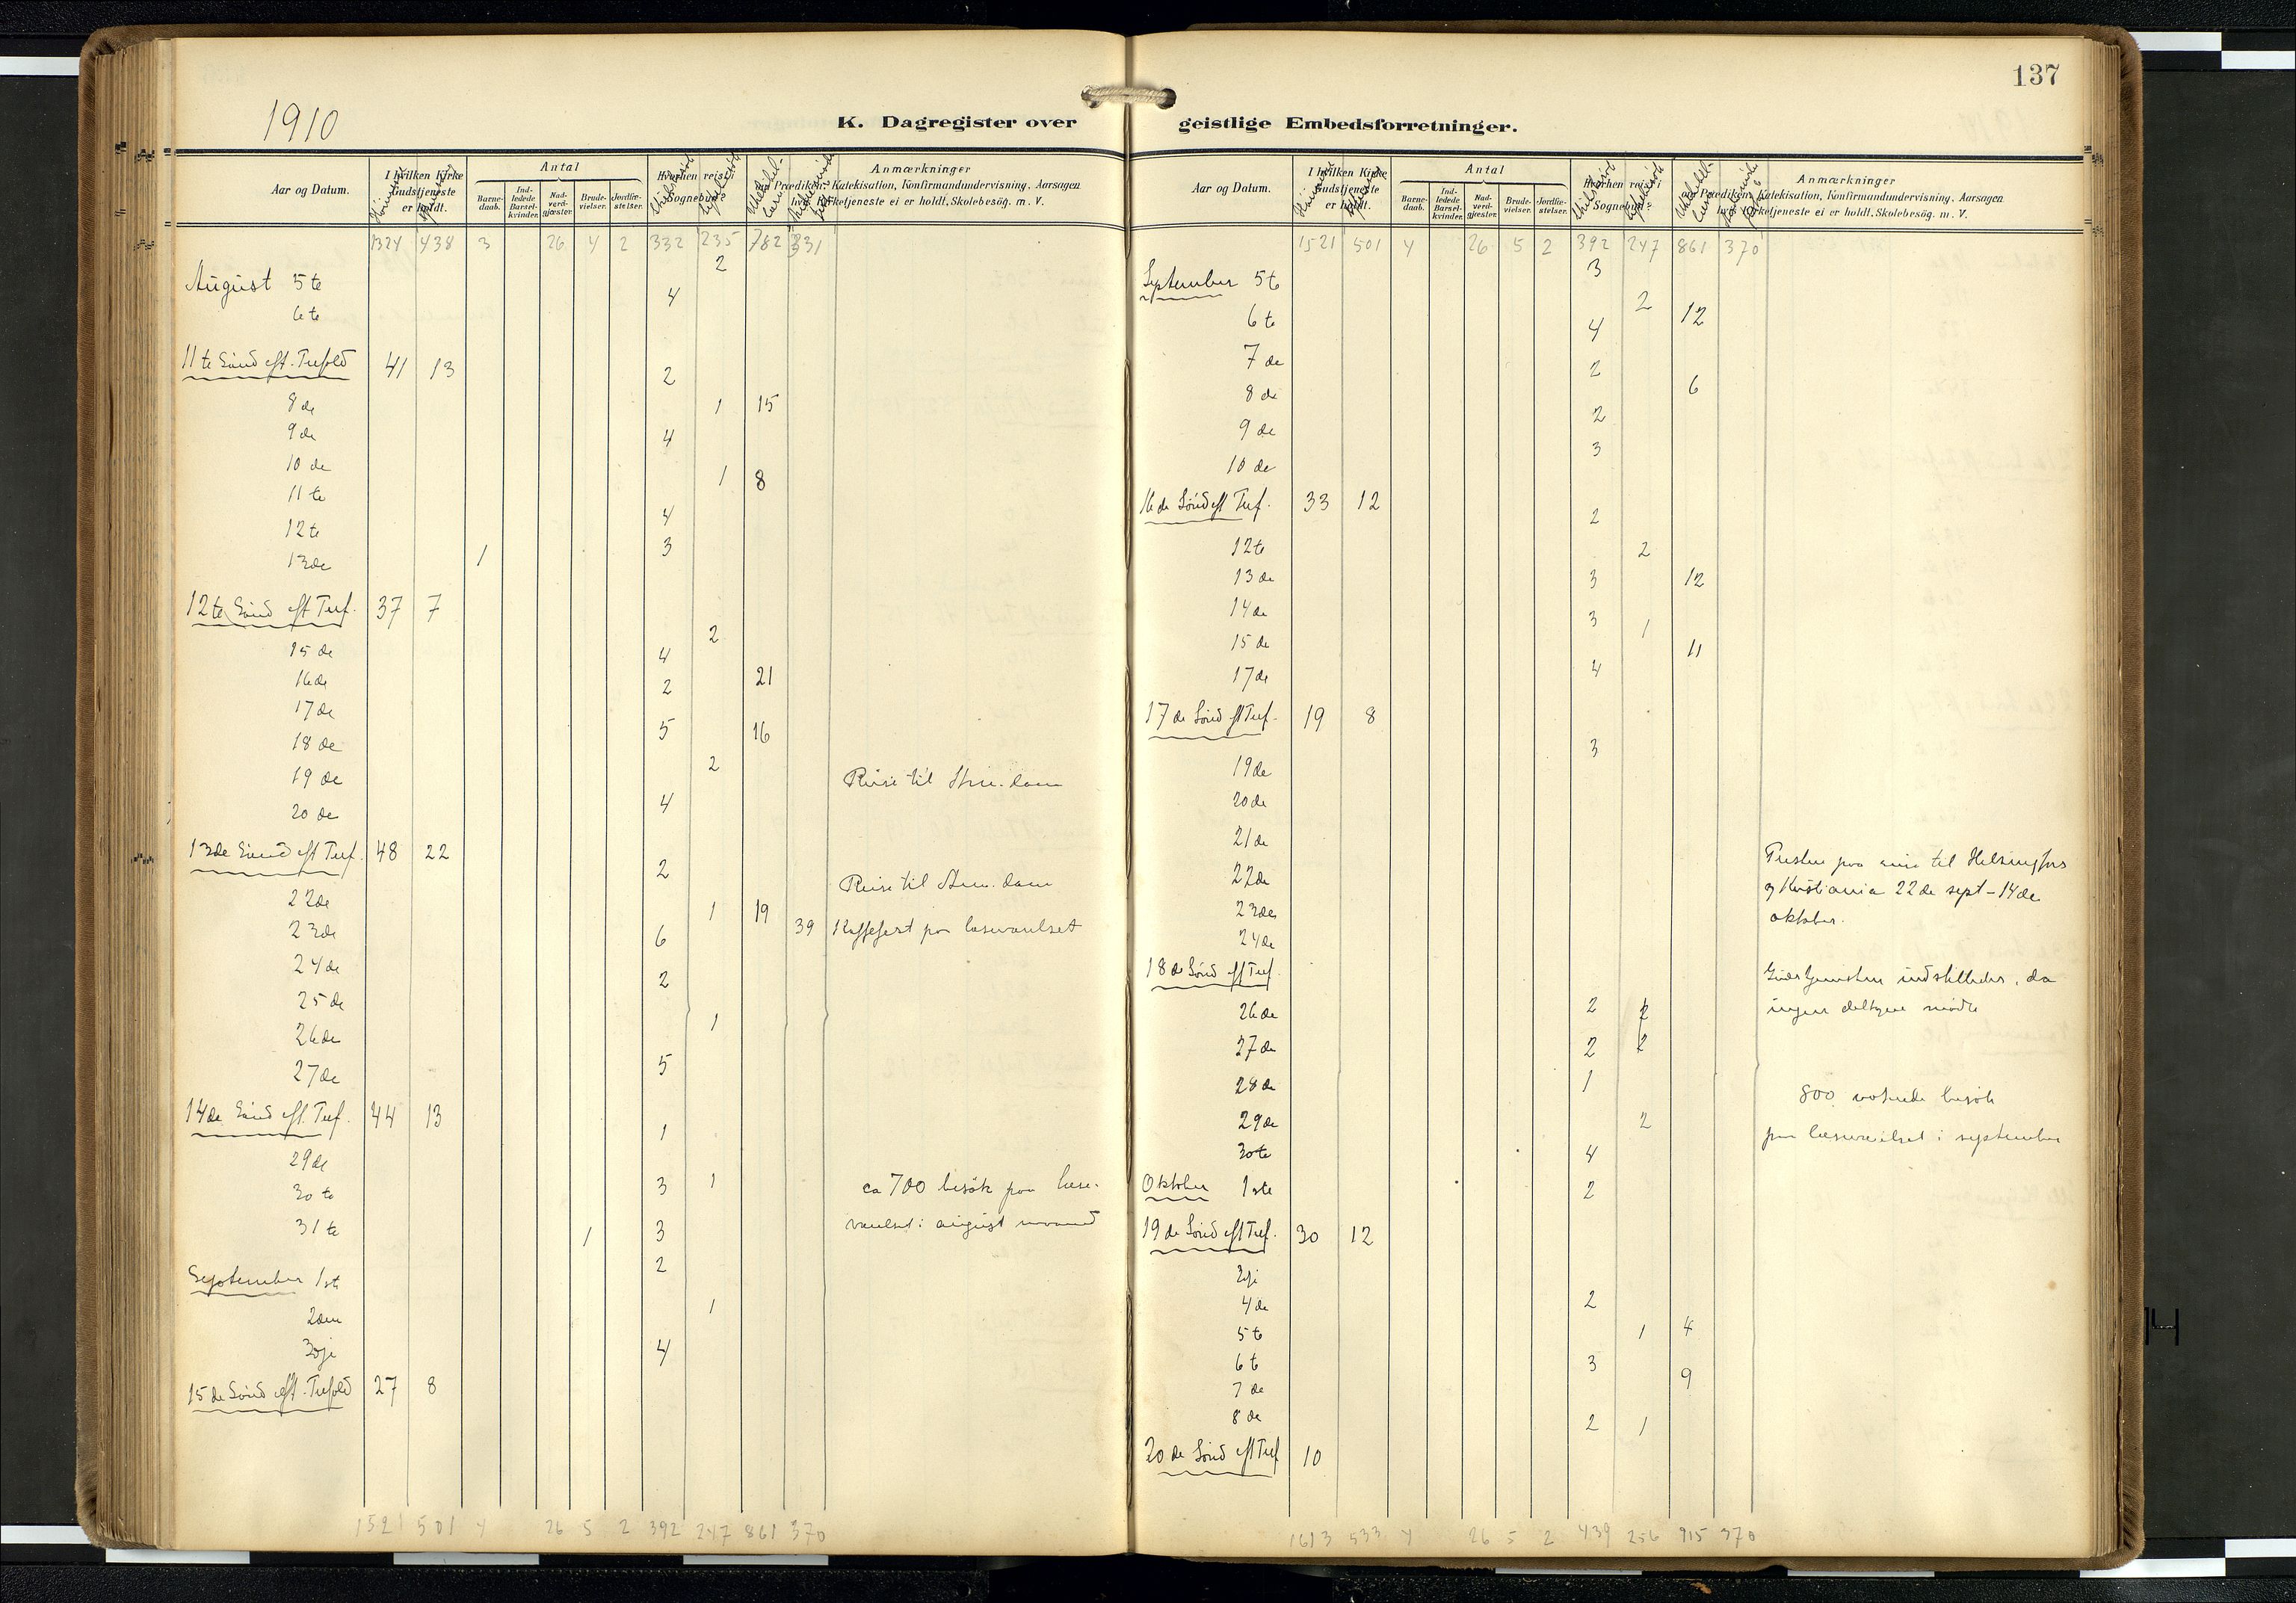 137
1910
K. Dagregister over geistlige Embedsforretninger.
Aar og Datum. I hvilken Kirke Gudstjeneste er holdt. Antal Barnedaab. Indledede Barselkvinder. Nadverdgjæster. Brudevielser. Jordfæstelser. Hvorhen reist i Sognebud. Anmærkninger om Prædiken, Katekisation, Konfirmandundervisning, Aarsagen hvi Kirketjeneste ei er holdt. Skolebesøg. m. V.
1324 438 3 26 4 2 332 235 782 331
2
August 5te
4
6te
11te Sønd eft. Trefold 41 13
2
8de 1 15
9de 4
10de
1 8
11te
4
12te
3
13de 1
12te Sønd eft Tref. 37 7
2
15de 4
16de 2 21
17de
5 16
18de
2
19de Reise til
4
20de
13de Sønd eft Tref. 48 22
2
Reise til
22de
1 19
23de 6 39 Kaffefest paa læseværelset
24de
2
25de
1
26de
5
27de
14de Sønd eft. Tref. 44 13
1
29de
30te 3 1 ca 700 besøk paa læse-
31te 1 3 værelset i august maaned
2
September 1ste
1
2den
3dje 4
15de Sønd eft. Trefold 27 8
1521 501 4 26 5 2 392 247 861 370
Aar og Datum. I hvilken Kirke Gudstjeneste er holdt. Antal Barnedaab. Indledede Barselkvinder. Nadverdgjæster. Brudevielser. Jordfæstelser. Hvorhen reist i Sognebud. Anmærkninger om Prædiken, Katekisation, Konfirmandundervisning, Aarsagen hvi Kirketjeneste ei er holdt. Skolebesøg. m. V.
1521 501 4 26 5 2 392 247 861 370
3
September 5te
2
6te 4 12
7de 2
6
8de
2
9de
3
10de
16de Sønd eft Tref. 33 12
2
12te 2
13de 3 12
14de 3
1
15de 11
17de 4
17de Sønd eft Tref. 19 8
3
19de
20de
21de
22de Presten paa reise til Helsingfors
og Kristiania 22de sept - 14de
23de oktober.
24de
18de Sønd eft Tref. Gudstjenesten indstilledes, da
26de 2 2 ingen deltagere mødte
27de 2 2
28de 1
800 besøk
29de 2
paa læseværelset i september
30te 4
Oktober 1ste 2
19de Sønd eft Tref. 30 12
3dje
4de 2
5te 1 4
6te 3
9
7de
8de 2 1
20de Sønd eft Tref 10
1613 533 4 26 5 2 439 256 915 370